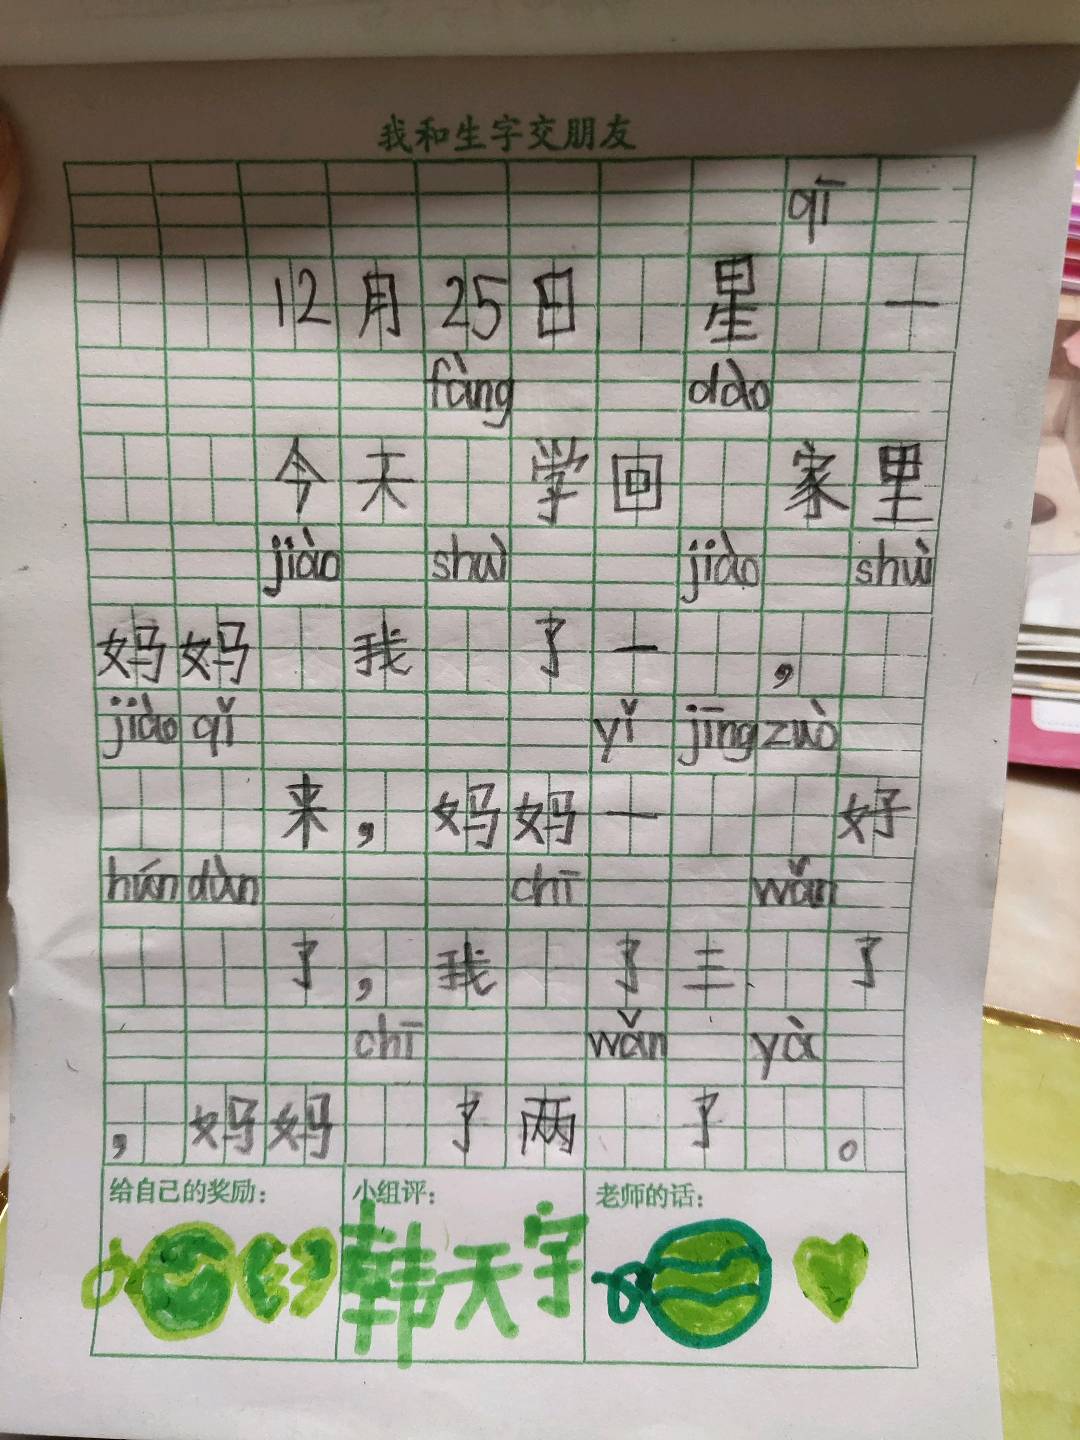 我和生字交朋友
qī
12月25日 星 一
fàng dào
今天 学回 家里
jiào shuì jiào shuì
妈妈 我 了一 ，
jiào qǐ yǐ jīng zuò
来，妈妈一 好
hún dùn chī wǎn
了，我 了三 了
chī wǎn yà
，妈妈 了两 了 。
给自己的奖励： 小组评： 老师的话：
韩天宇